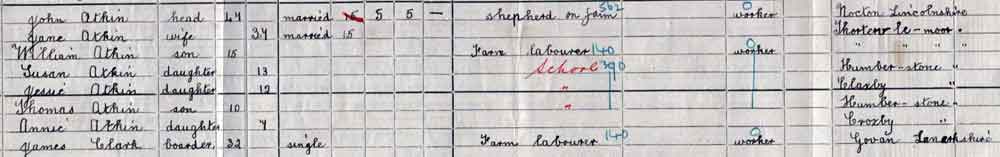 John Atkin head 47 married 15 5 5 — shepherd on farm 562 0 worker Nocton Lincolnshire
Jane Atkin wife 34 married 15 Thorton le-moor "
William Atkin son 15 Farm labourer 140 0 worker " " " "
Susan Atkin daughter 13 School 390 Humber-stone "
Jessie Atkin daughter 12 " Claxby "
Thomas Atkin son 10 " Humber-stone "
Annie Atkin daughter 4 Croxby "
James Clark boarder 32 single Farm labourer 140 0 worker Govan Lanarkshire